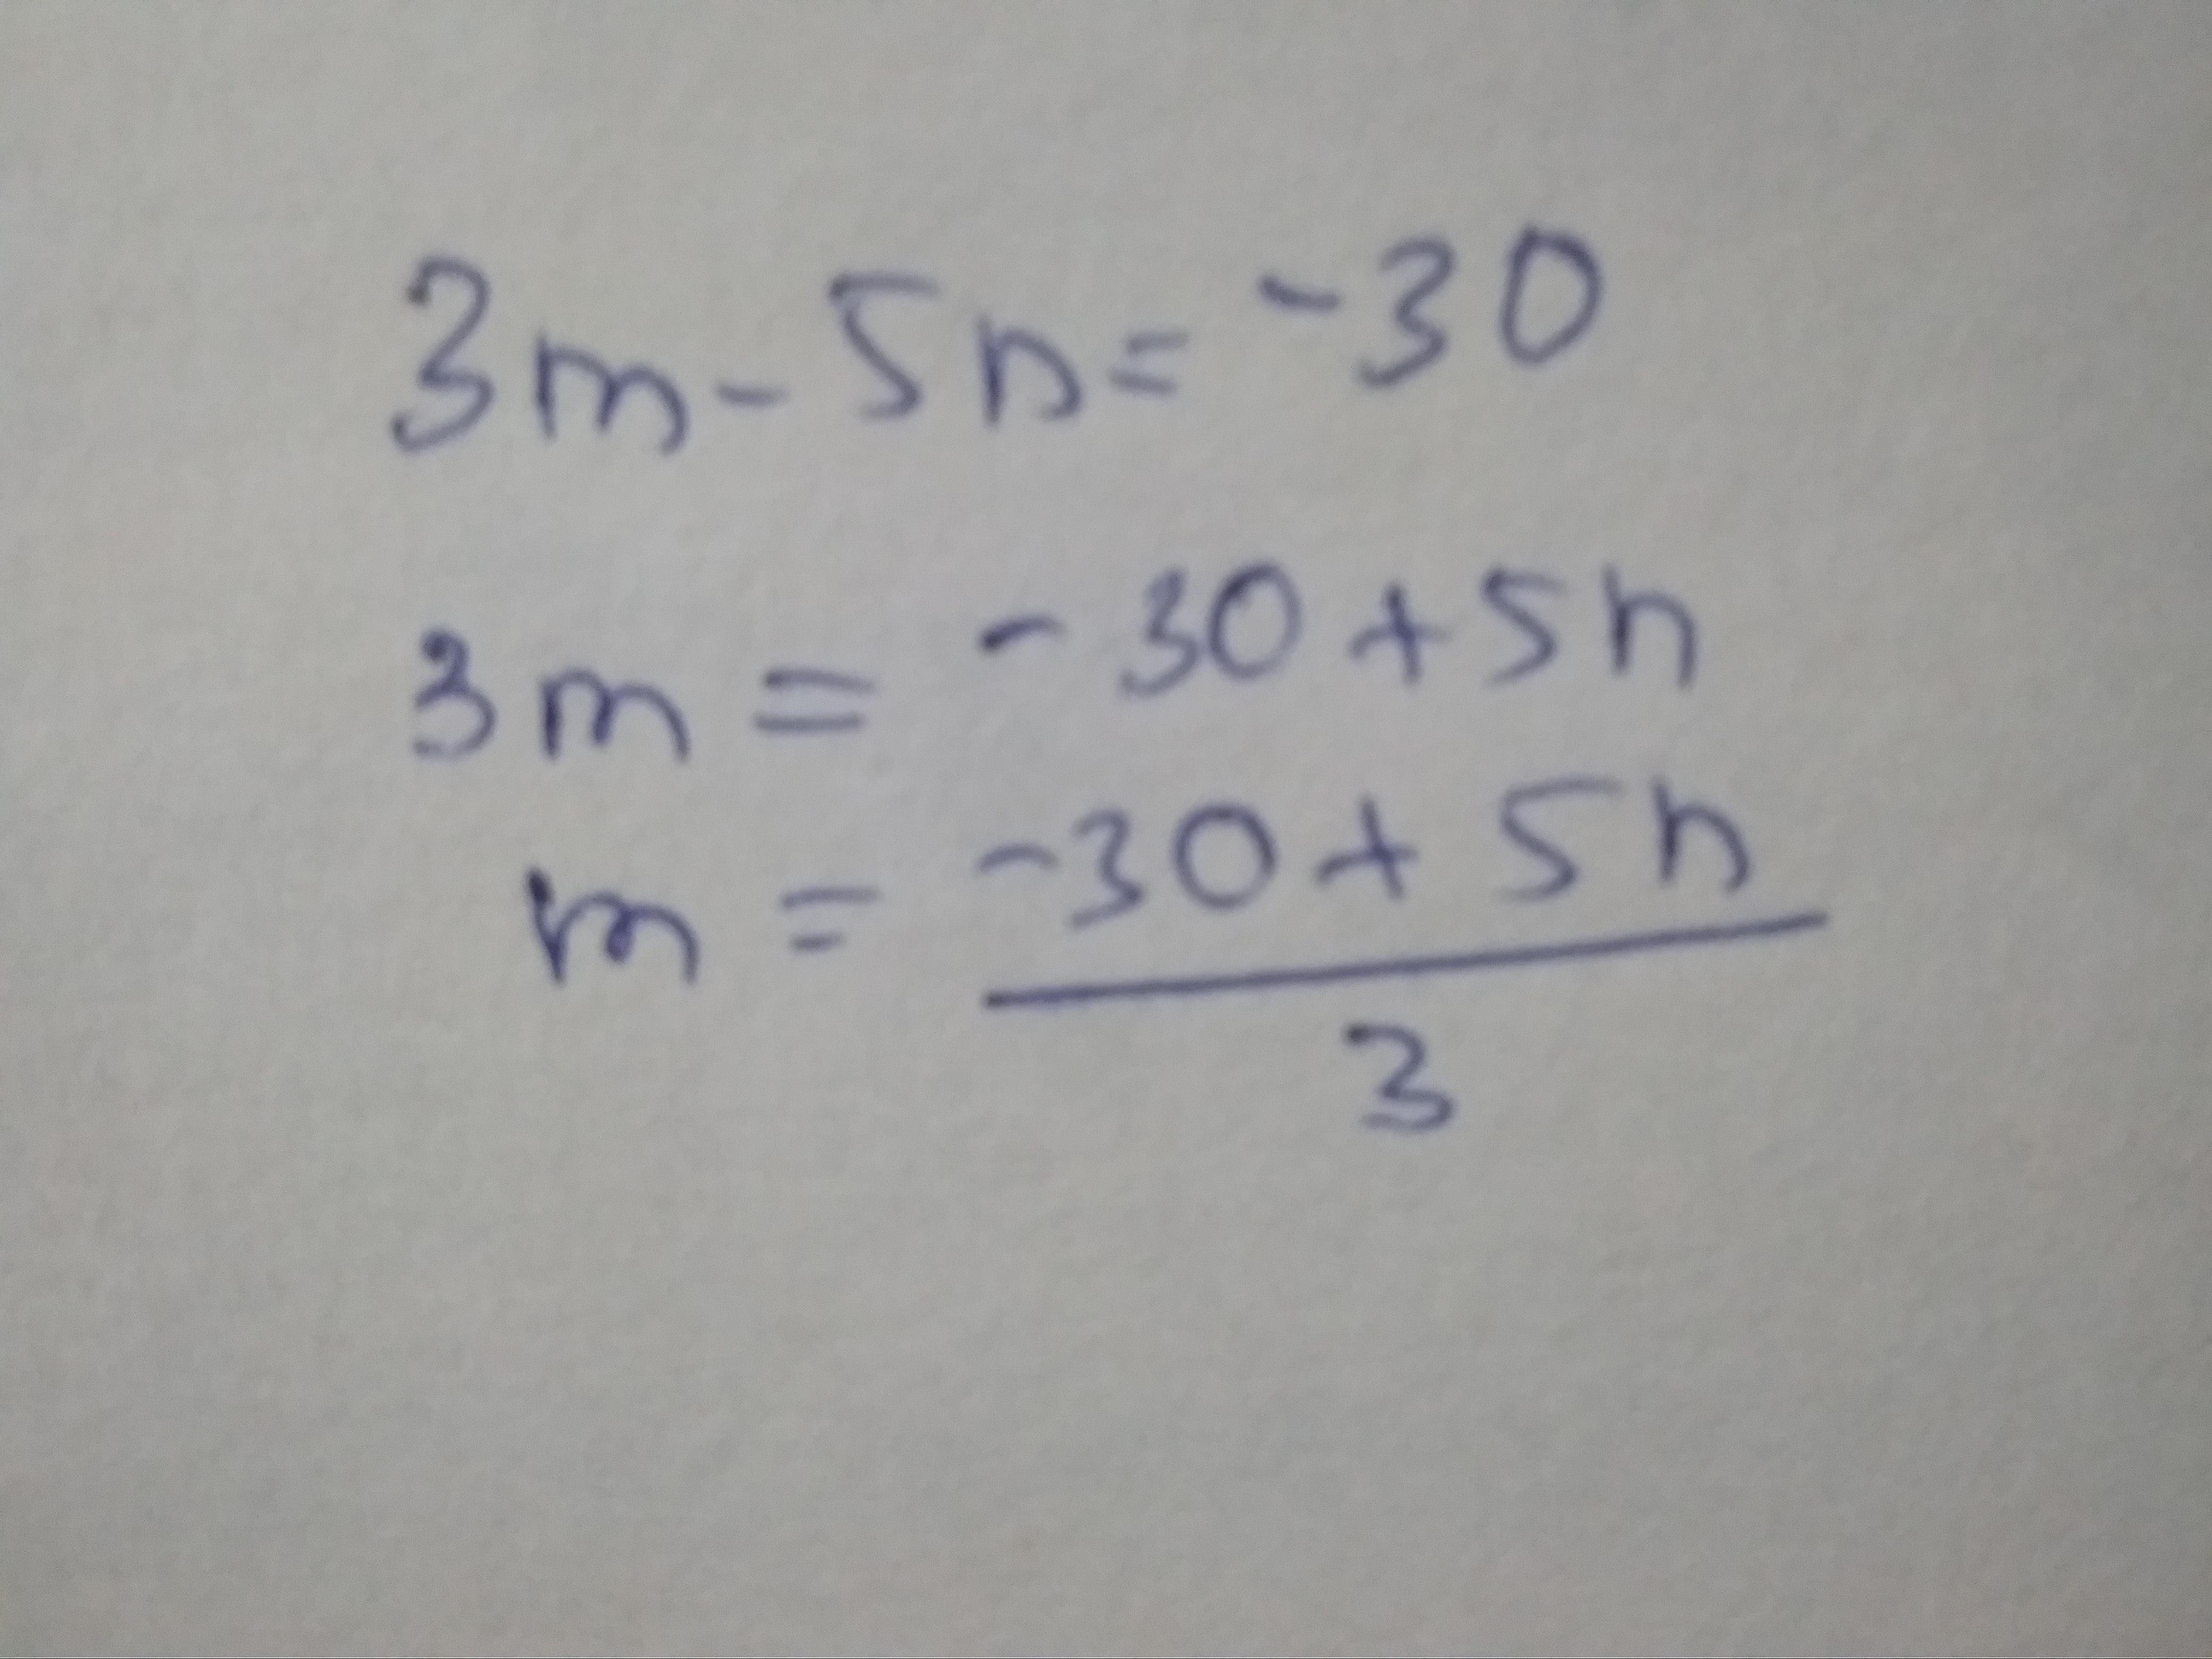 3m - 5n = -30
3m = -30 + 5n
m = -30 + 5n
3